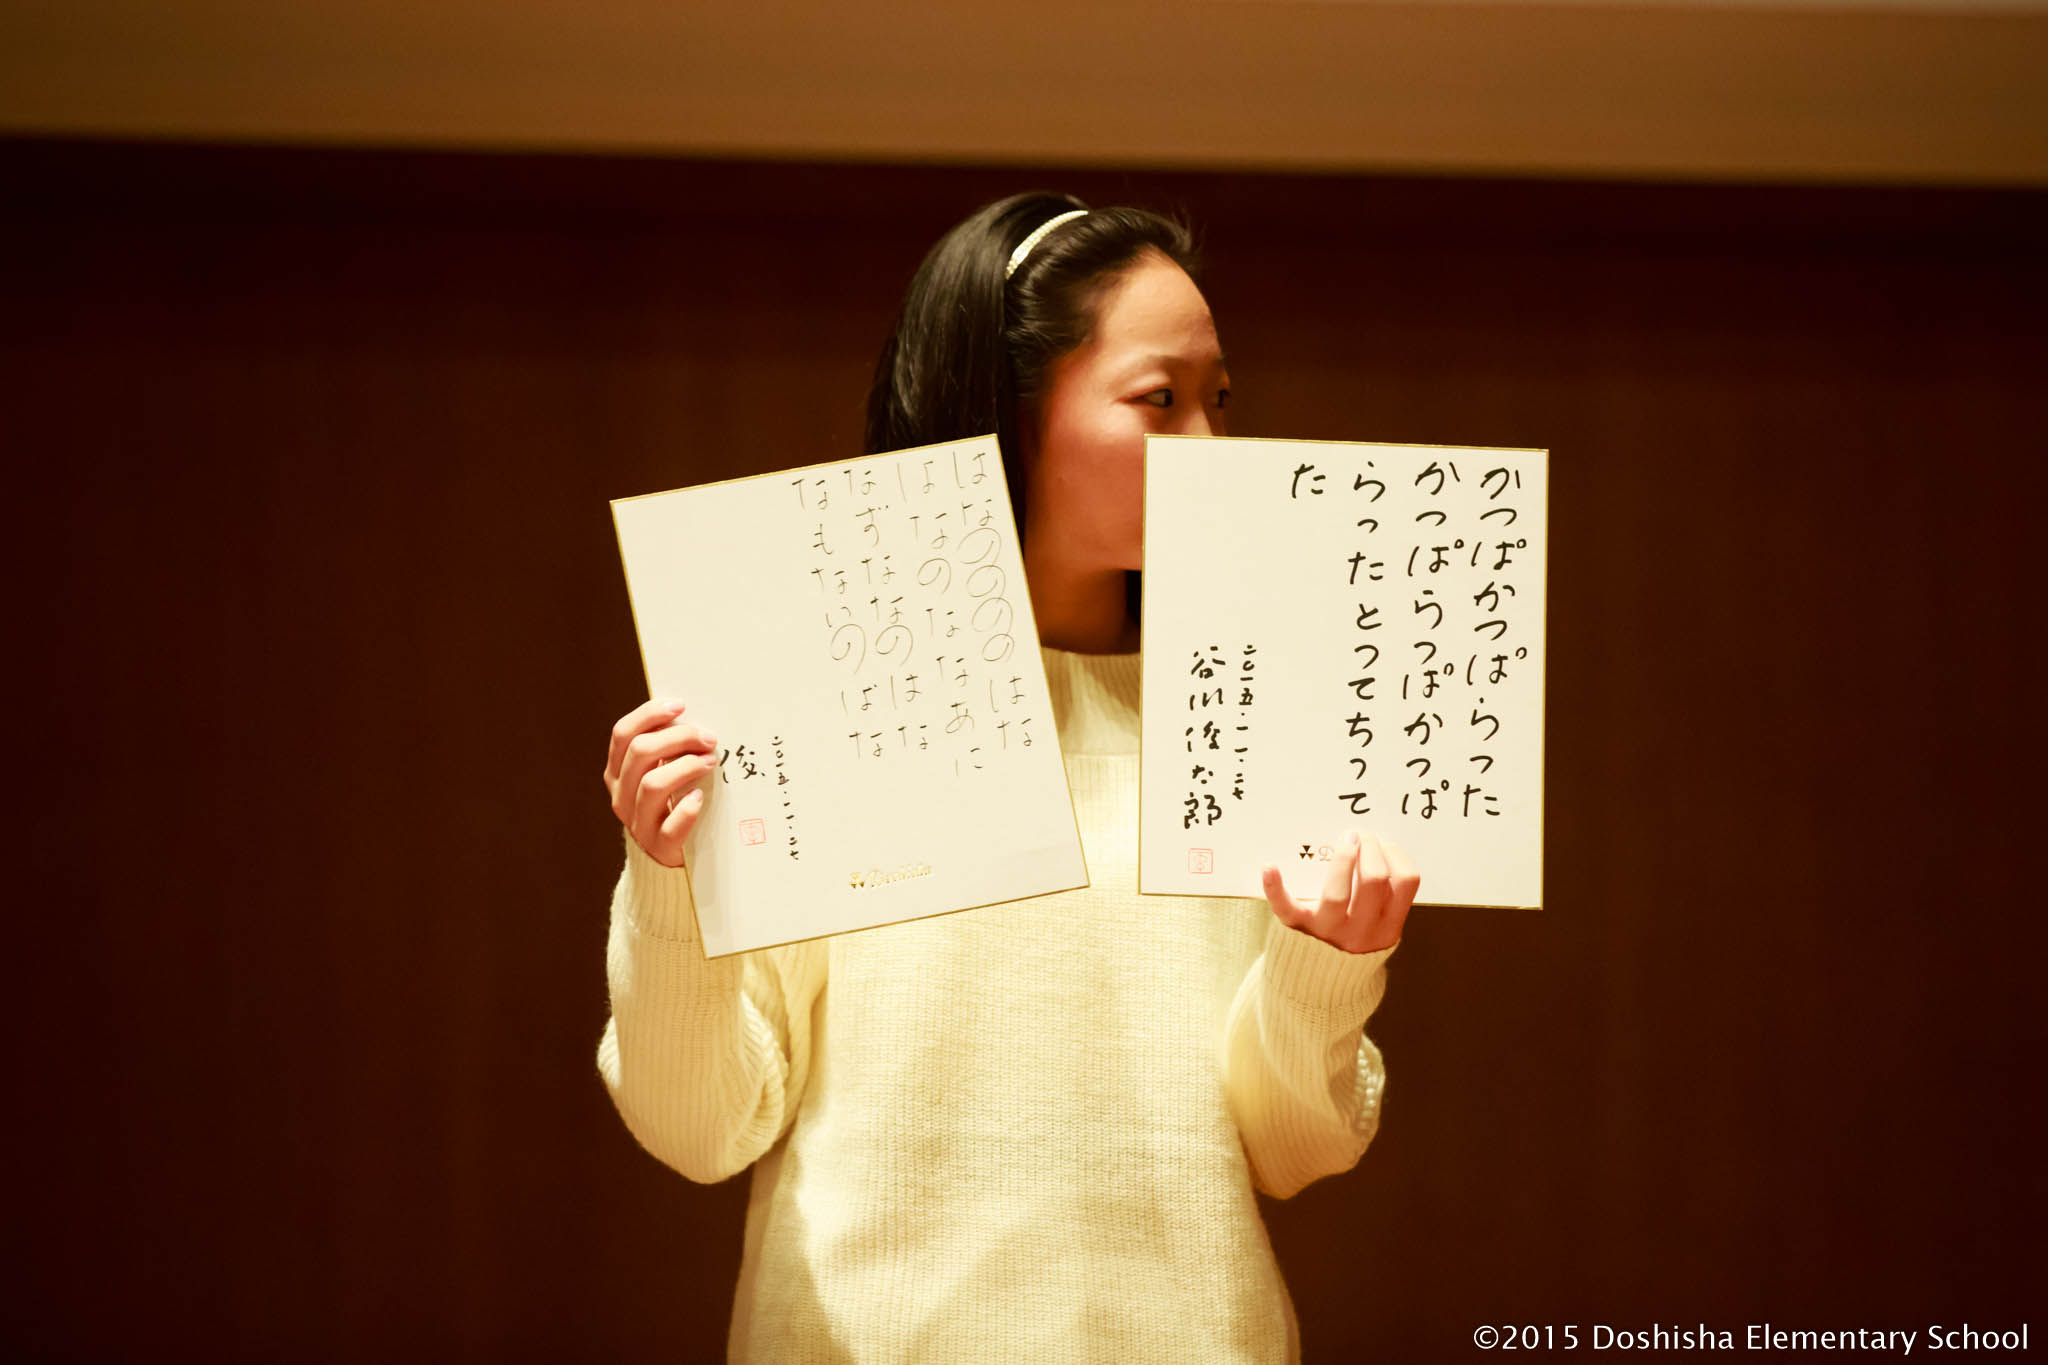 はなののののはな
はなのななあに
なずななのはな
なもないのばな
二〇一五・一一・二七
俊
Doshisha
かっぱかっぱらった
かっぱらっぱかっぱ
らったとってちって
た
二〇一五・一一・二七
谷川俊太郎
©2015 Doshisha Elementary School